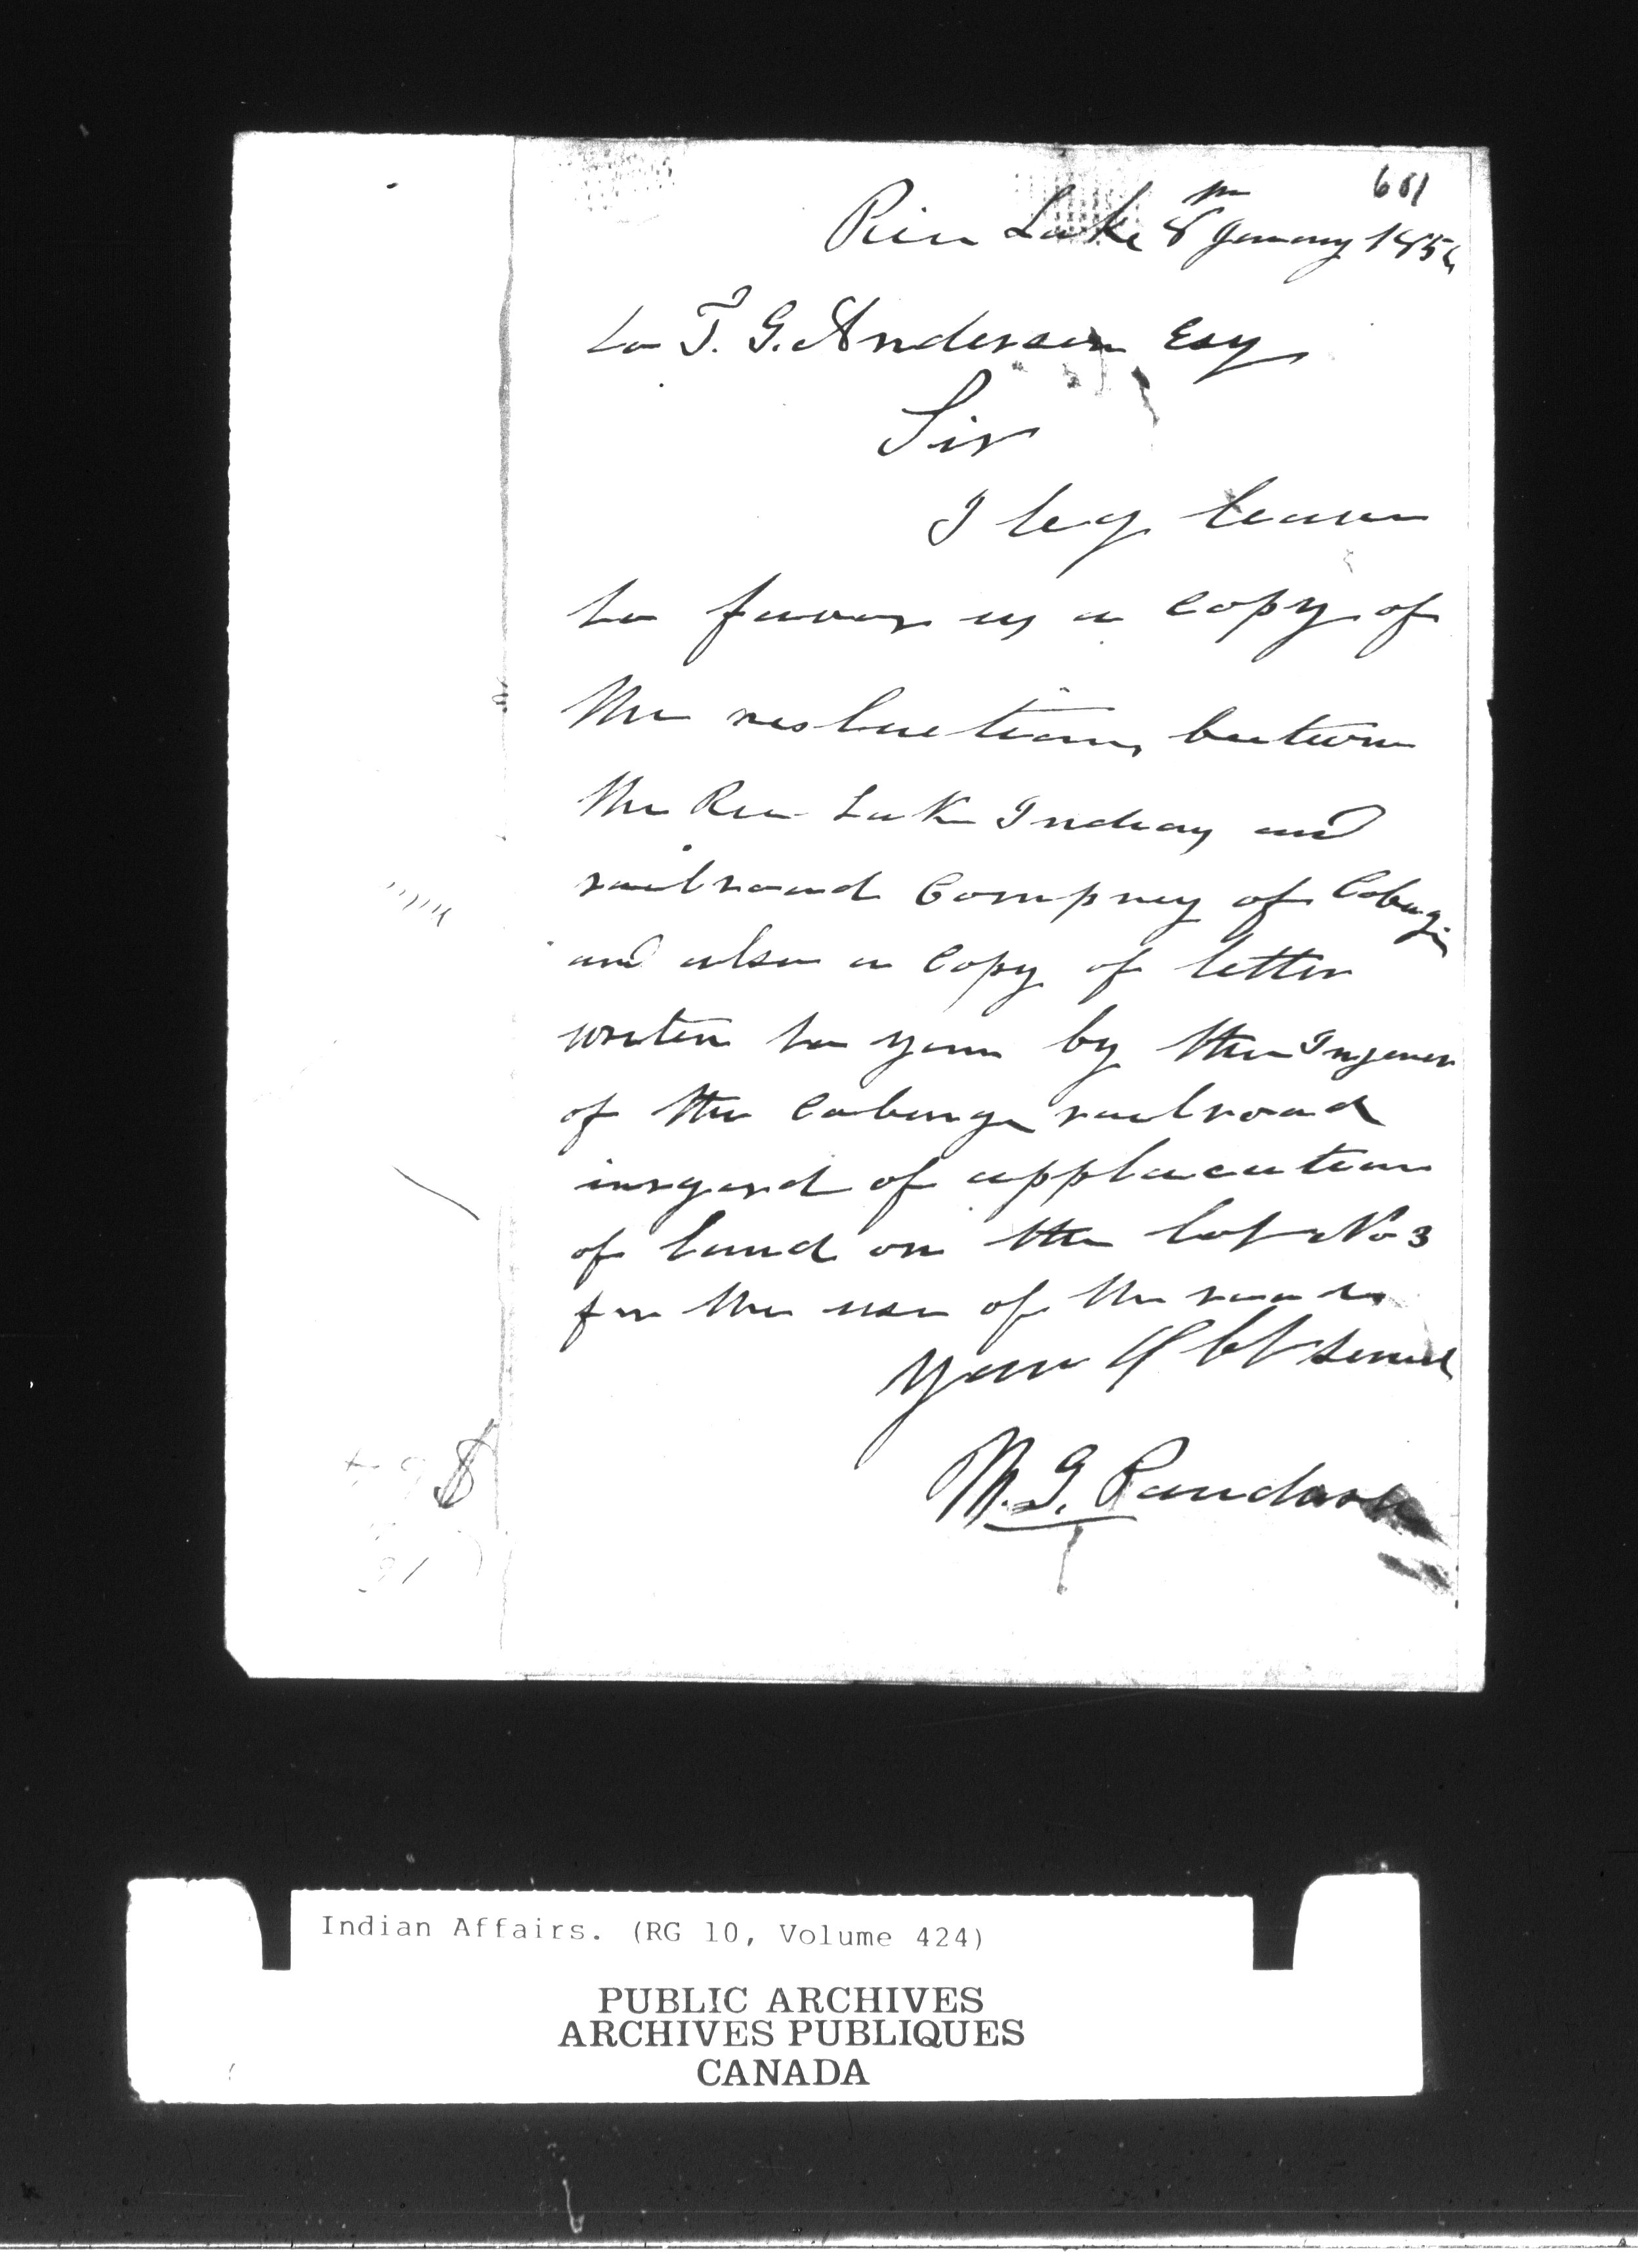 681
Rice Lake 8th January 1854
to T. G. Anderson Esq
Sir
I beg leave
to favor us a copy of
the reslutions between
the Rice Lake Indians and
railroad Compney of Coburg
and also a Copy of letter
writen to you by the Ingener
of the Coburg railroad
inregard of applacation
of land on the lot No 3
for the use of the
your Obt servt
M. G. Paudash
Indian Affairs. (RG 10, Volume 424)
PUBLIC ARCHIVES
ARCHIVES PUBLIQUES
CANADA